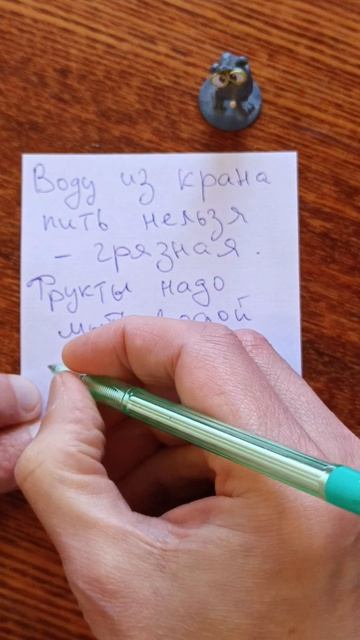 Воду из крана
пить нельзя
- грязная.
Фрукты надо
мыть водой